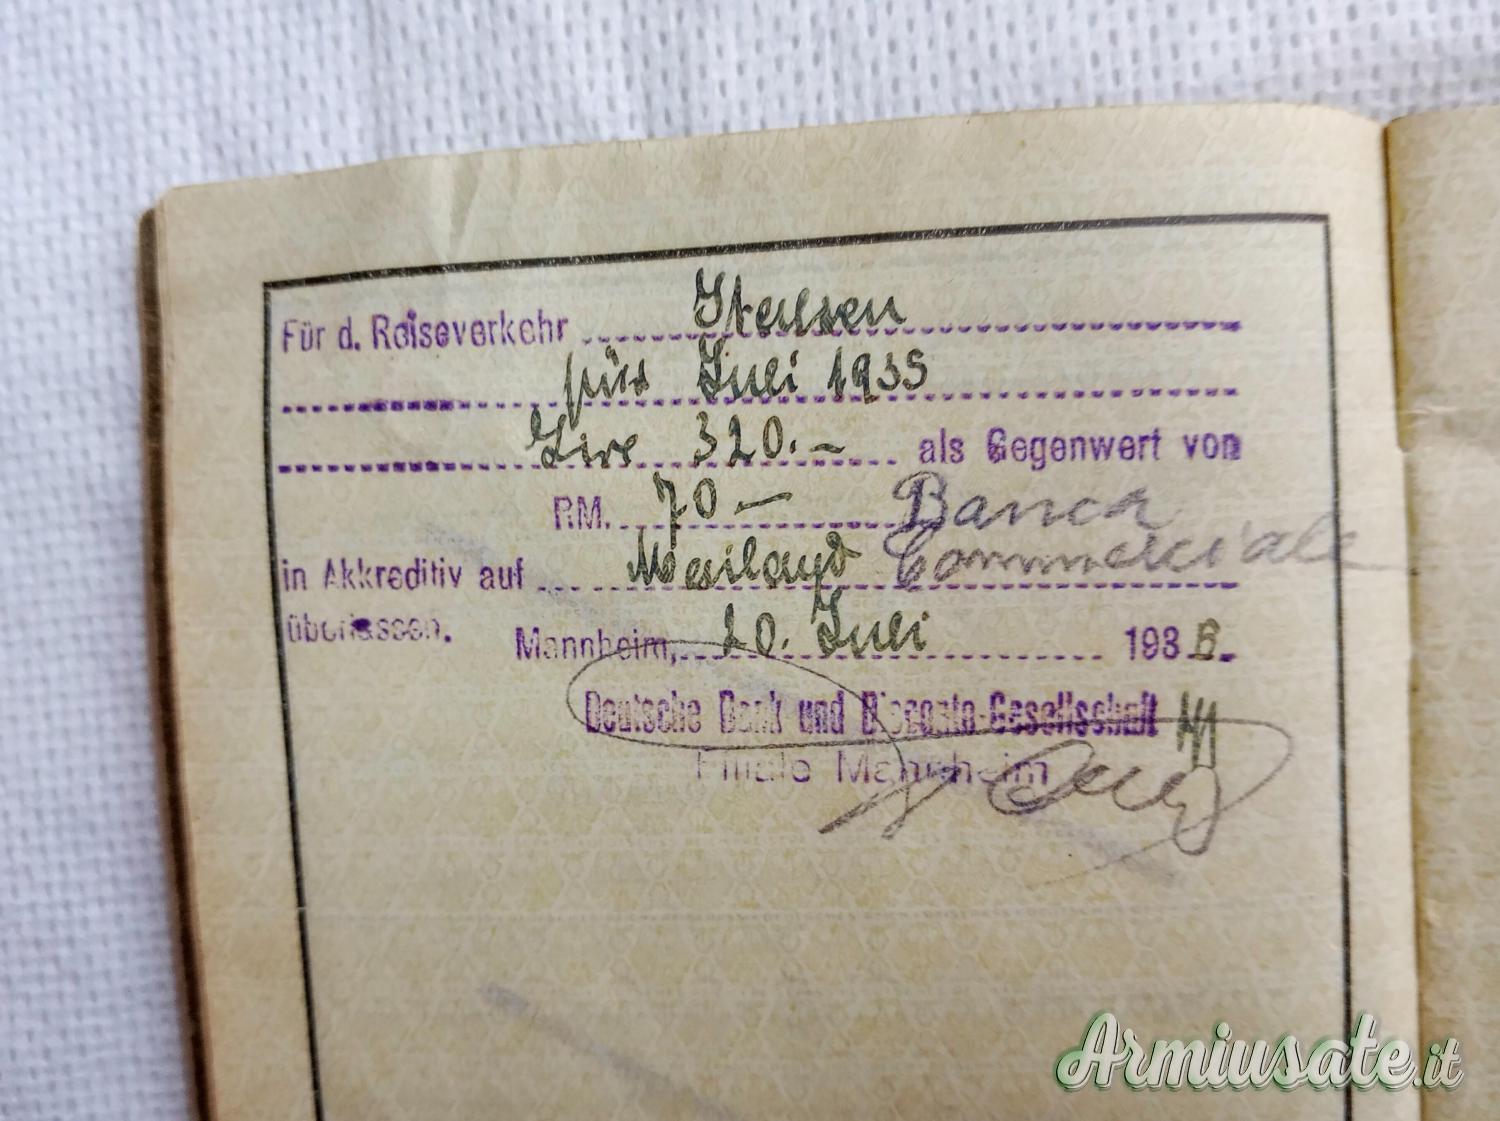 Für d. Reiseverkehr Italien
für Juli 1935
Lire 320.- als Gegenwert von
RM. 70 - Banca
in Akkreditiv auf Mailand Commerciale
überlassen. Mannheim, 20. Juli 1935.
Deutsche Bank und Disconto-Gesellschaft
Filiale Mannheim
Armiusate.it